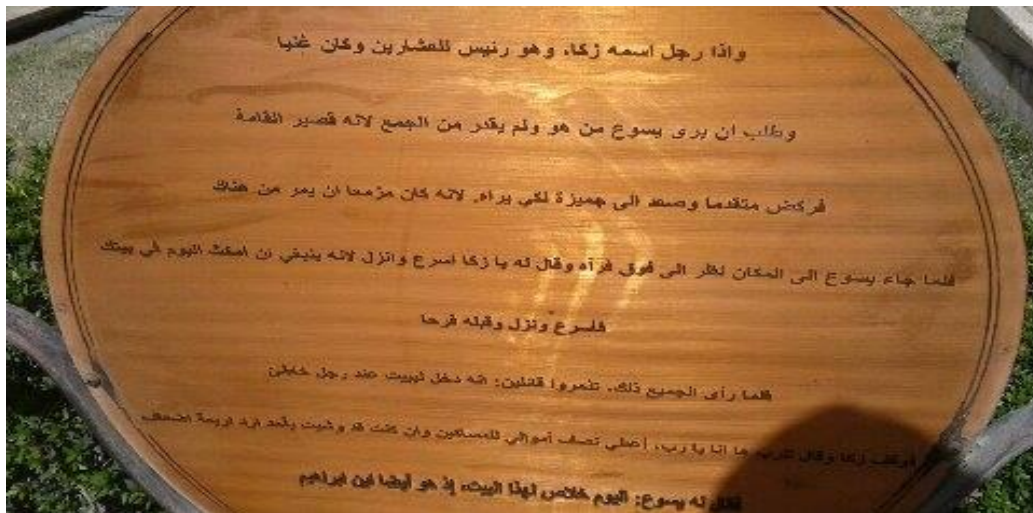 واذا رجل اسمه زكا، وهو رئيس للعشارين وكان غنيا
وطلب ان يرى يسوع من هو ولم يقدر من الجمع لانه قصير القامة
فركض متقدما وصعد الى جميزة لكي يراه. لانه كان مزمعا ان يمر من هناك
فلما جاء يسوع الى المكان نظر الى فوق فرآه وقال له يا زكا اسرع وانزل لانه ينبغي ان امكث اليوم في بيتك
فاسرع ونزل وقبله فرحا
فلما رأى الجميع ذلك، تذمروا قائلين: انه دخل ليبيت عند رجل خاطئ
فوقف زكا وقال للرب: ها انا يا رب، أعطي نصف أموالي للمساكين وان كنت قد وشيت بأحد ارد اربعة اضعاف
فقال له يسوع: اليوم خلاص لهذا البيت، إذ هو أيضا ابن ابراهيم